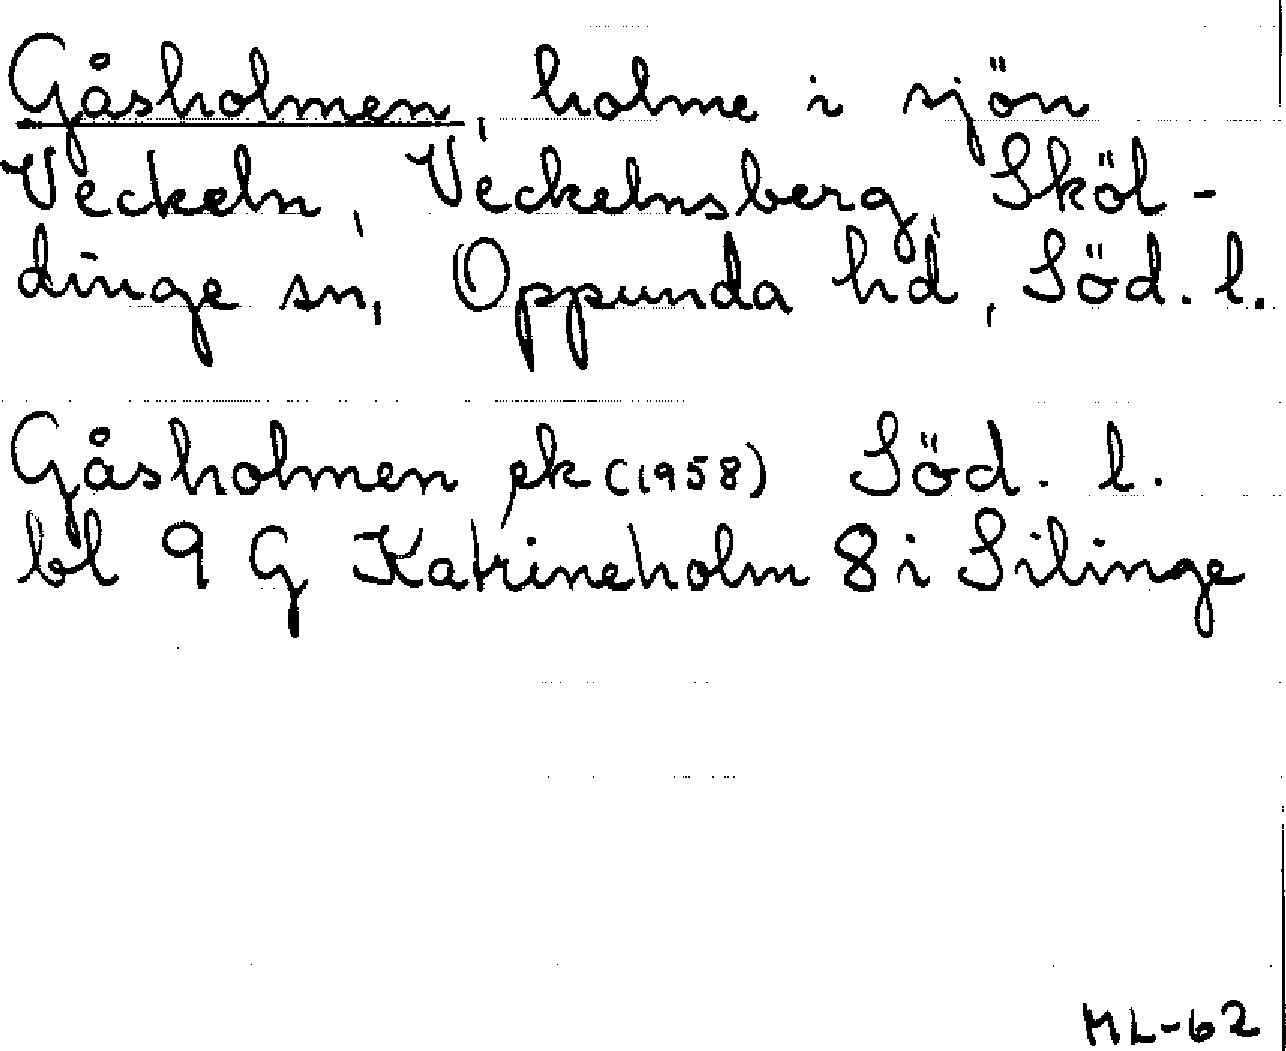 Gåsholmen, holme i sjön
Veckeln, Veckelnsberg, Sköl-
dinge sn, Oppunda hd, Söd. l.
Gåsholmen ek (1958) Söd. l.
bl 9 G Katrineholm 8 i Silinge
ML-62